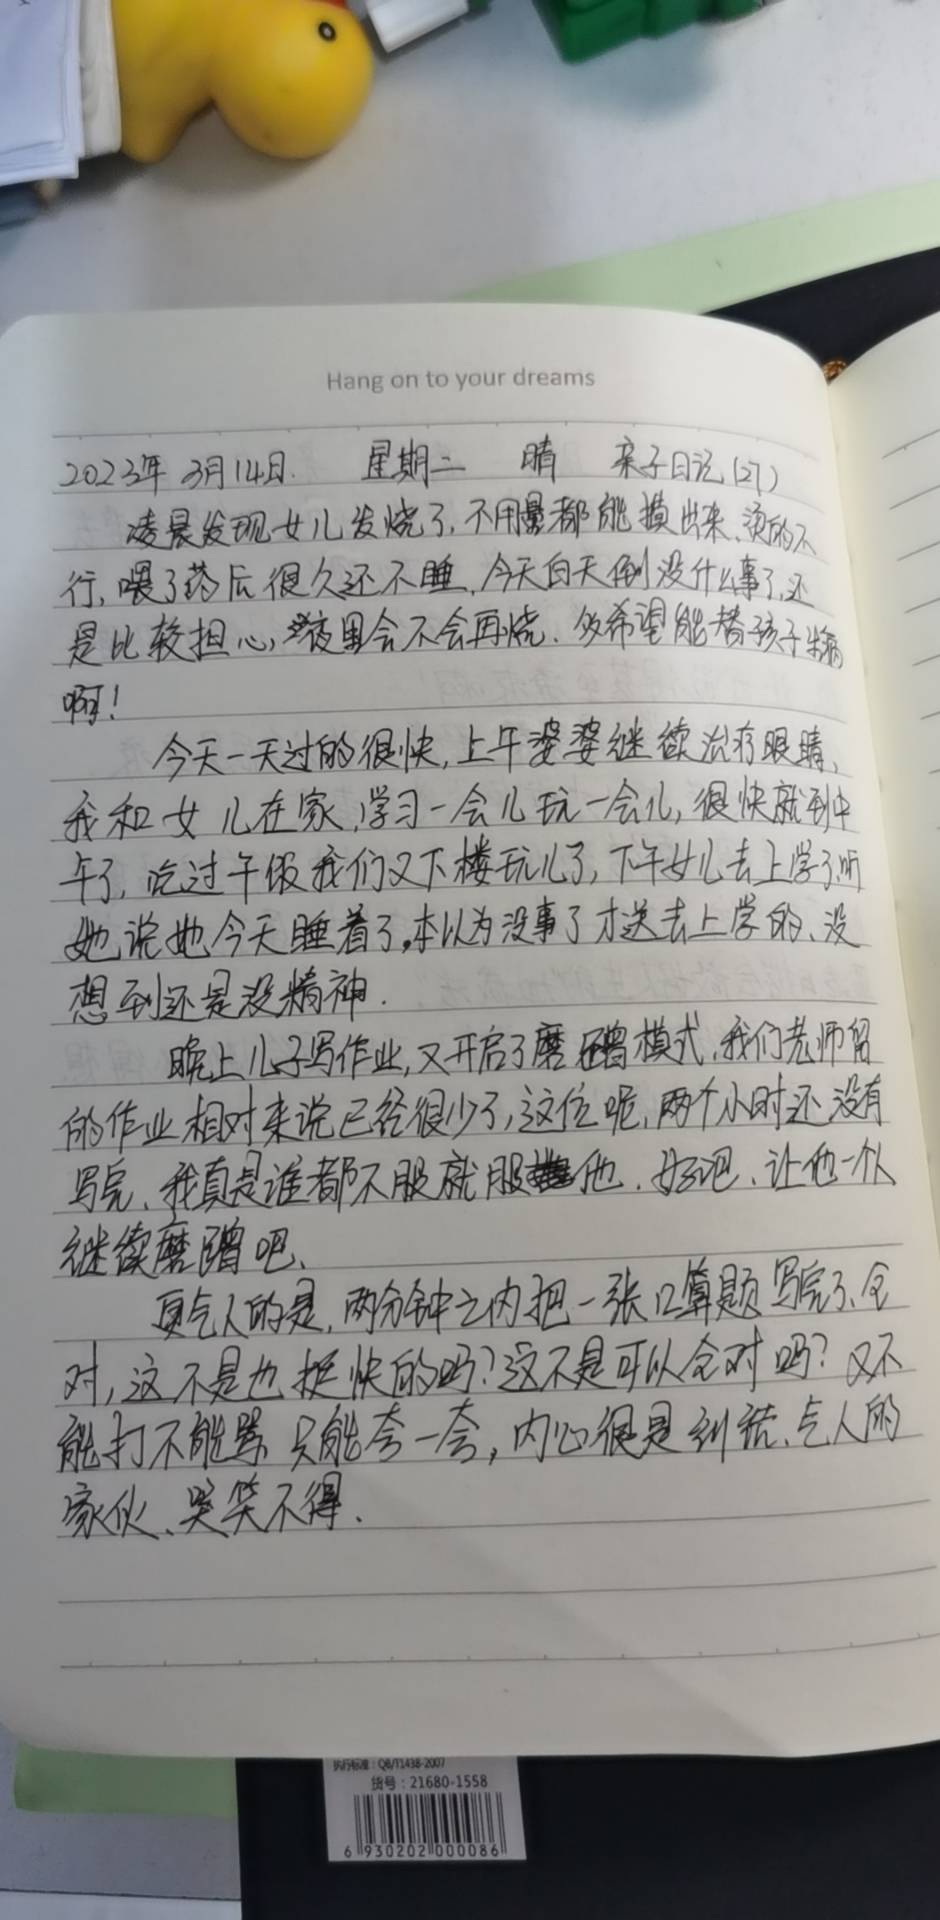 Hang on to your dreams
2023年 3月14日. 星期二 晴 亲子日记(27)
凌晨发现女儿发烧了,不用量都能摸出来、烫的不
行,喂了药后很久还不睡,今天白天倒没什么事了,还
是比较担心,夜里会不会再烧.多希望能替孩子生病
啊!
今天一天过的很快,上午婆婆继续治疗眼睛,
我和女儿在家,学习一会儿玩一会儿,很快就到中
午了,吃过午饭我们又下楼玩儿了,下午女儿去上学了,听
她说她今天睡着了,本以为没事了才送去上学的、没
想到还是没精神.
晚上儿子写作业,又开启了磨蹭模式,我们老师留
的作业相对来说已经很少了,这位呢,两个小时还没有
写完、我真是谁都不服就服他.好吧、让他一个人
继续磨蹭吧、
更气人的是,两分钟之内把一张口算题写完了、全
对,这不是也挺快的吗?这不是可以全对吗?又不
能打不能骂 只能夸一夸,内心很是纠结、气人的
家伙、哭笑不得.
执行标准:QB/T1438-2007
货号:21680-1558
6 930202 000086